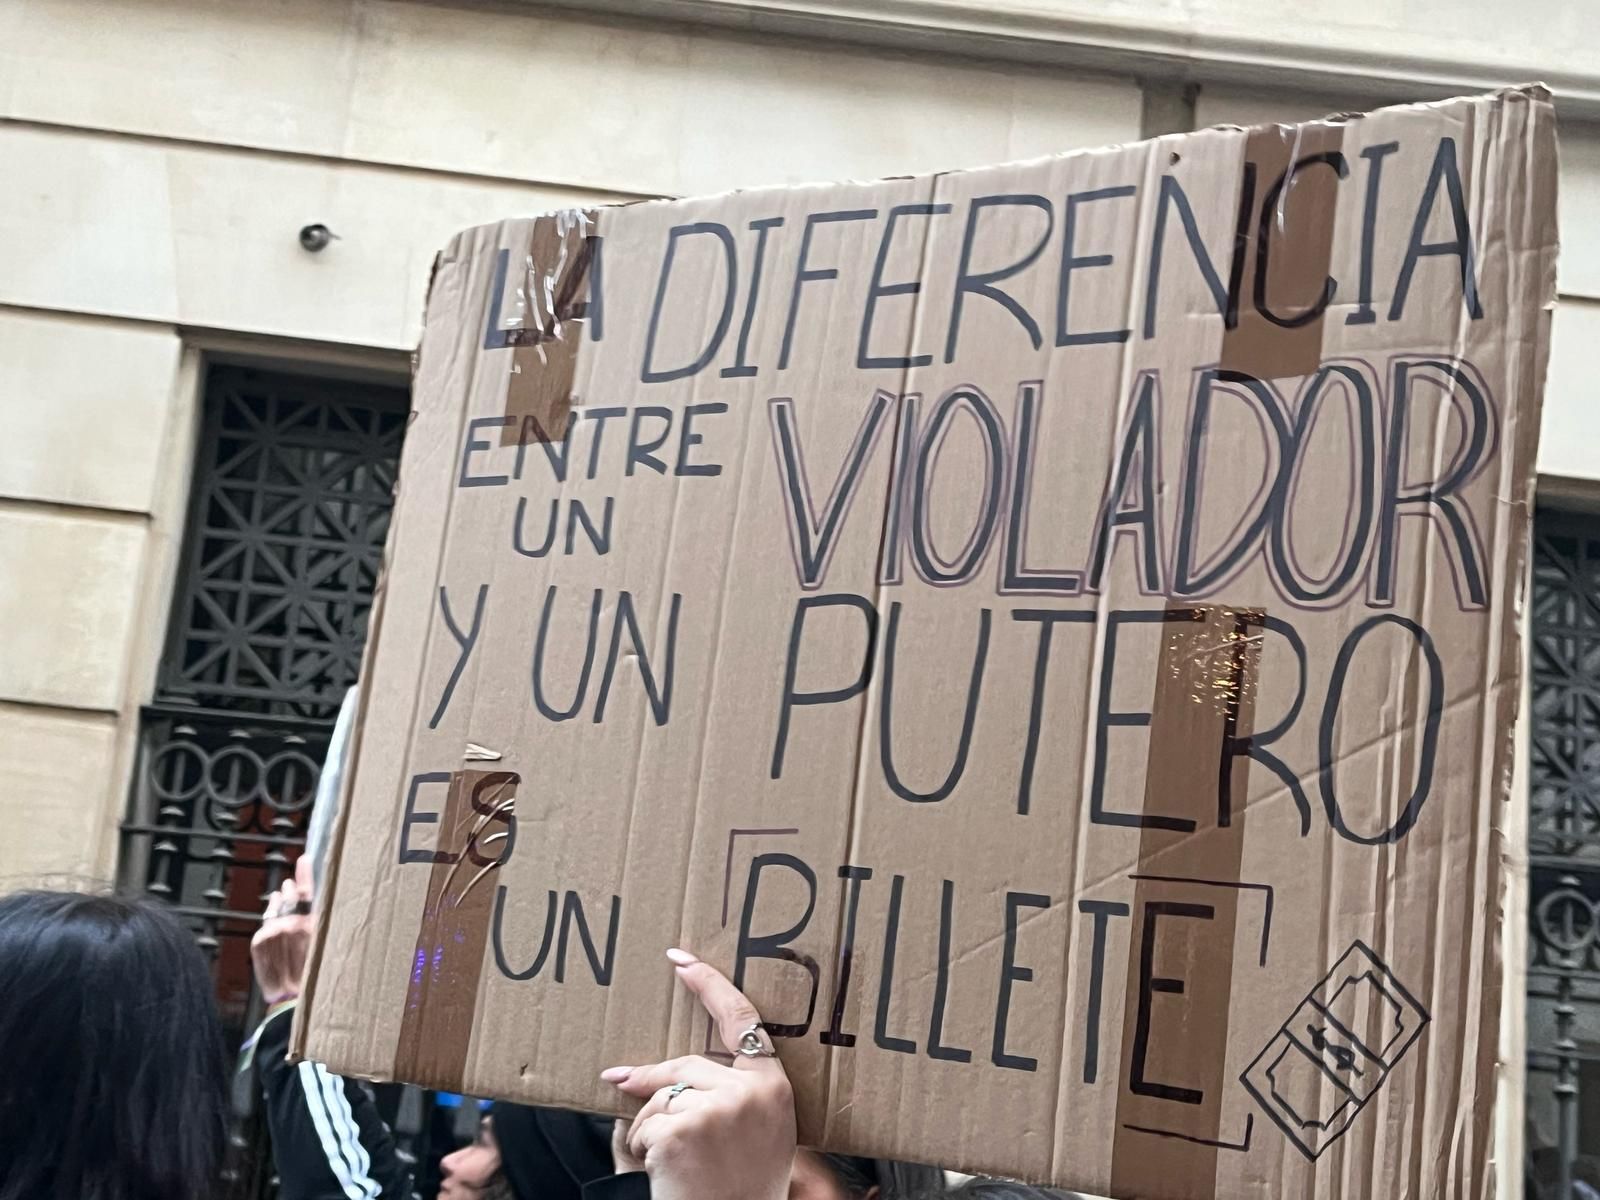 LA DIFERENCIA
ENTRE VIOLADOR
UN
Y UN PUTERO
ES
UN BILLETE
$